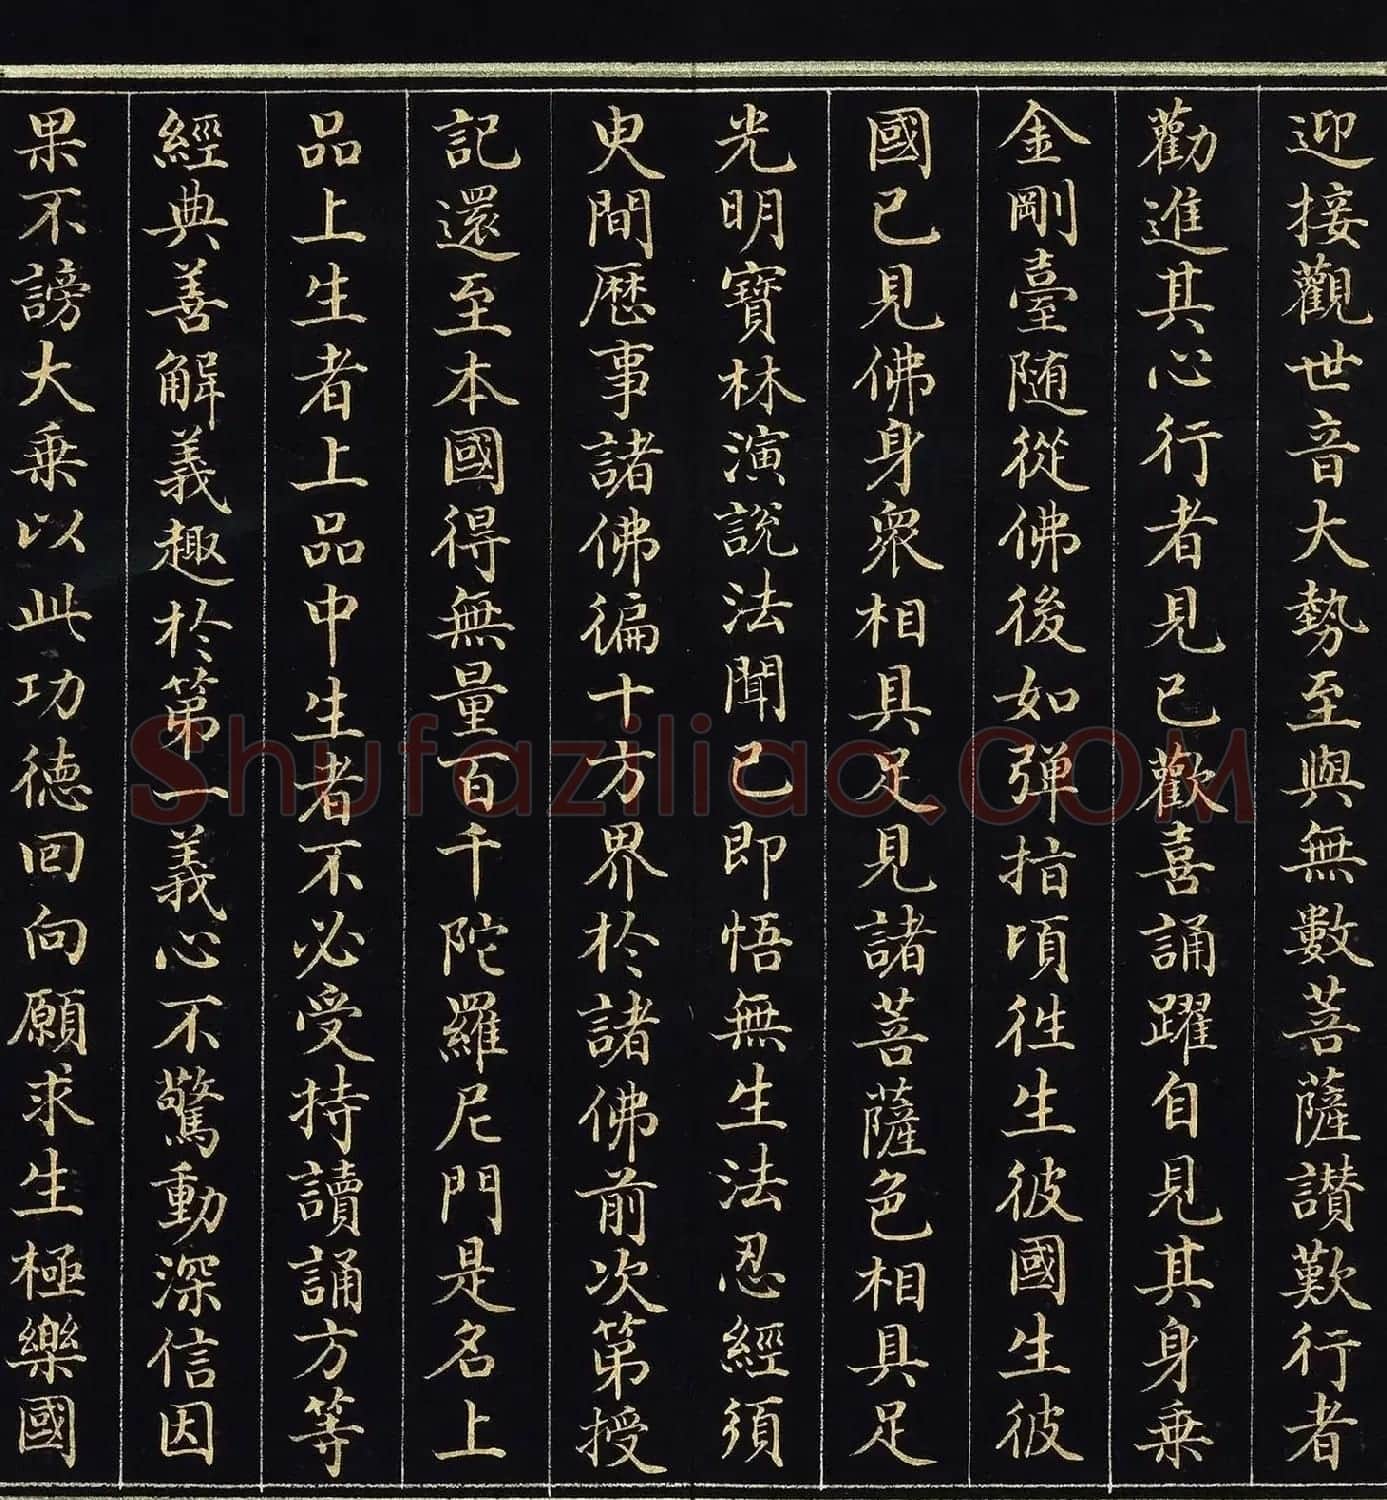 迎接觀世音大勢至與無數菩薩讃歎行者
勸進其心行者見已歡喜誦躍自見其身乗
金剛臺随從佛後如彈指頃徃生彼國生彼
國已見佛身衆相具足見諸菩薩色相具足
光明寶林演説法聞已即悟無生法忍經須
臾間歴事諸佛徧十方界於諸佛前次第授
記還至本國得無量百千陀羅尼門是名上
品上生者上品中生者不必受持讀誦方等
經典善解義趣於第一義心不驚動深信因
果不謗大乗以此功徳回向願求生極樂國
Shufaziliao.COM